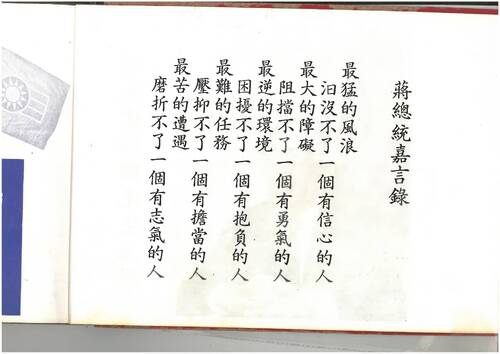 蔣總統嘉言錄
最猛的風浪
汩沒不了一個有信心的人
最大的障礙
阻擋不了一個有勇氣的人
最逆的環境
困擾不了一個有抱負的人
最難的任務
壓抑不了一個有擔當的人
最苦的遭遇
磨折不了一個有志氣的人